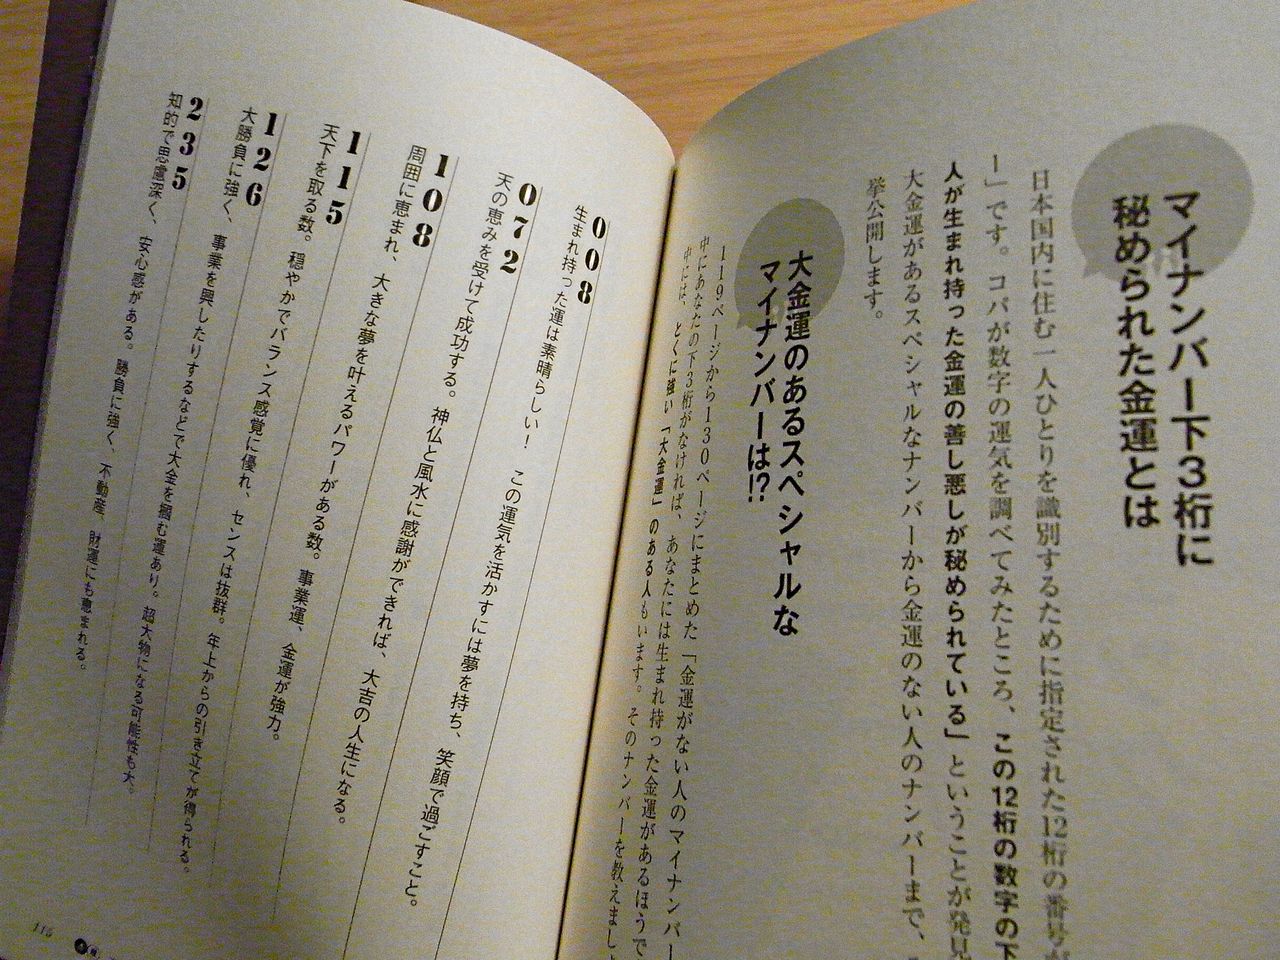 マイナンバー下3桁に
秘められた金運とは
日本国内に住む一人ひとりを識別するために指定された12桁の番号が
ー」です。コパが数字の運気を調べてみたところ、この12桁の数字の下
人が生まれ持った金運の善し悪しが秘められている」ということが発見
大金運があるスペシャルなナンバーから金運のない人のナンバーまで、
挙公開します。
大金運のあるスペシャルな
マイナンバーは!?
119ページから130ページにまとめた「金運がない人のマイナンバー
中にあなたの下3桁がなければ、あなたには生まれ持った金運があるほうで
中には、とくに強い「大金運」のある人もいます。そのナンバーを教えまし
008
生まれ持った運は素晴らしい! この運気を活かすには夢を持ち、笑顔で過ごすこと。
072
天の恵みを受けて成功する。神仏と風水に感謝ができれば、大吉の人生になる。
108
周囲に恵まれ、大きな夢を叶えるパワーがある数。事業運、金運が強力。
115
天下を取る数。穏やかでバランス感覚に優れ、センスは抜群。年上からの引き立てが得られる。
126
大勝負に強く、事業を興したりするなどで大金を掴む運あり。超大物になる可能性も大。
235
知的で思慮深く、安心感がある。勝負に強く、不動産、財運にも恵まれる。
115